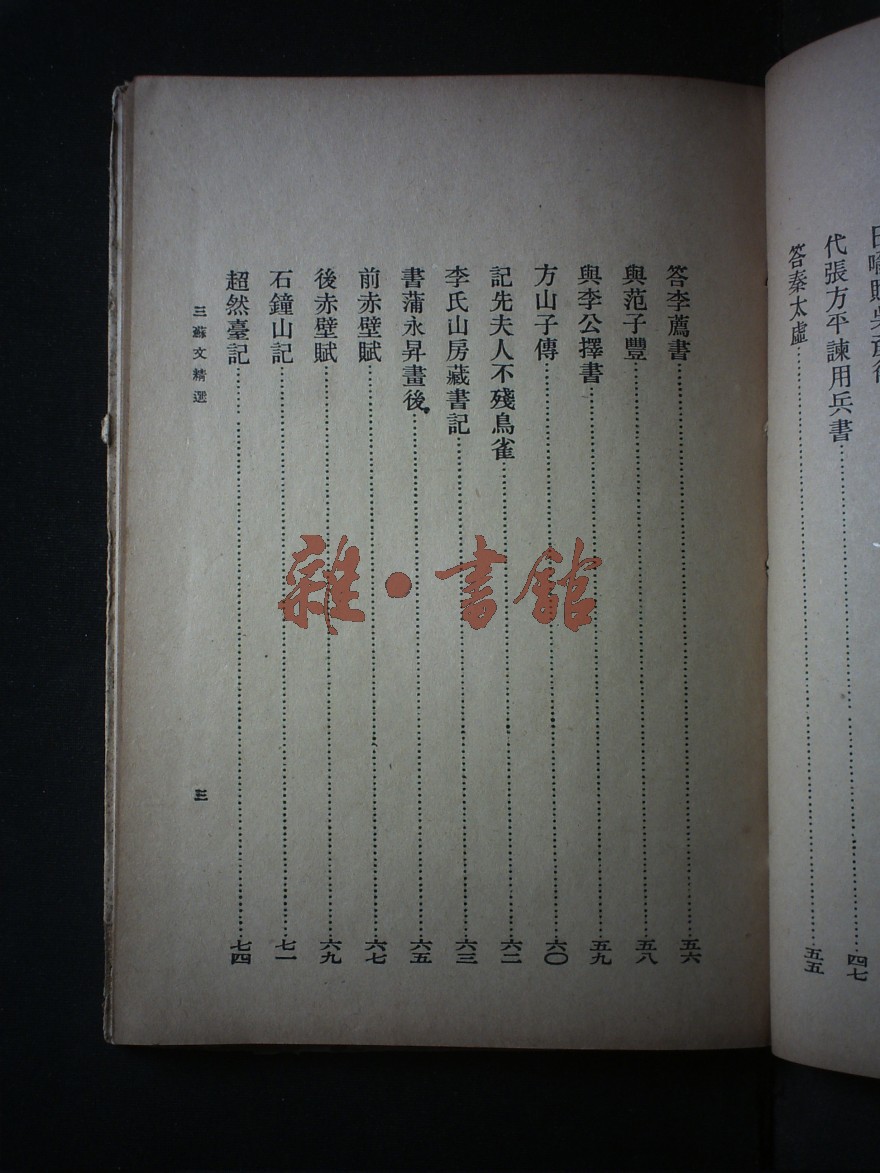 代張方平諫用兵書……四七
答秦太虛……五五
答李廌書……五六
與范子豐……五八
與李公擇書……五九
方山子傳……六〇
記先夫人不殘鳥雀……六二
李氏山房藏書記……六三
書蒲永昇畫後……六五
前赤壁賦……六七
後赤壁賦……六九
石鐘山記……七一
超然臺記……七四
三蘇文精選
三
雜・書館